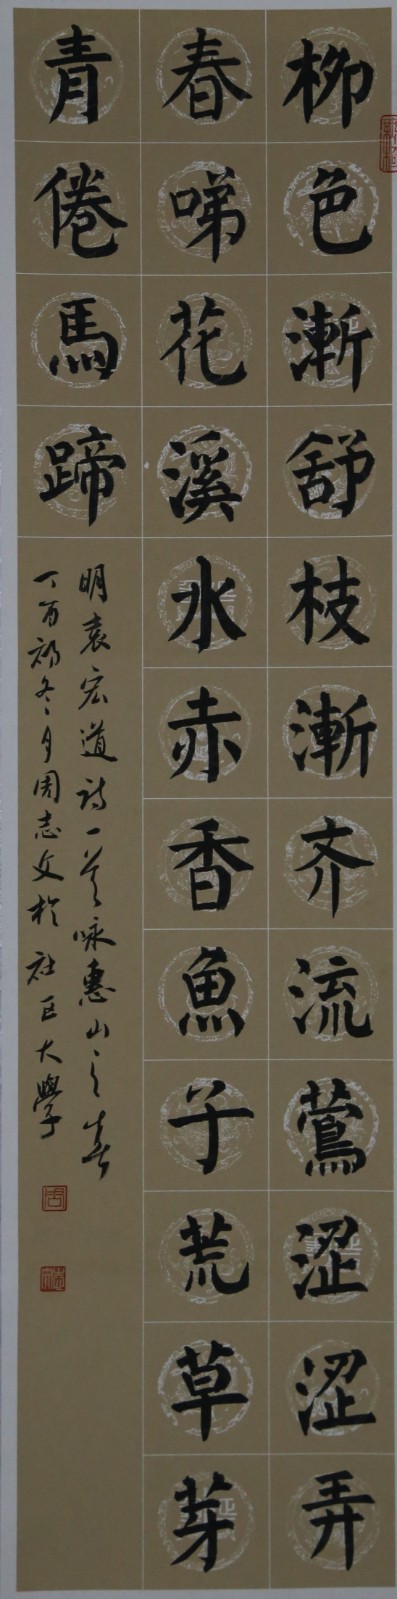 柳色漸舒枝漸齐流鶯涩涩弄
春啼花溪水赤香魚子荒草芽
青倦馬蹄
明袁宏道诗一首咏惠山之春
丁酉初冬月周志文於社区大學